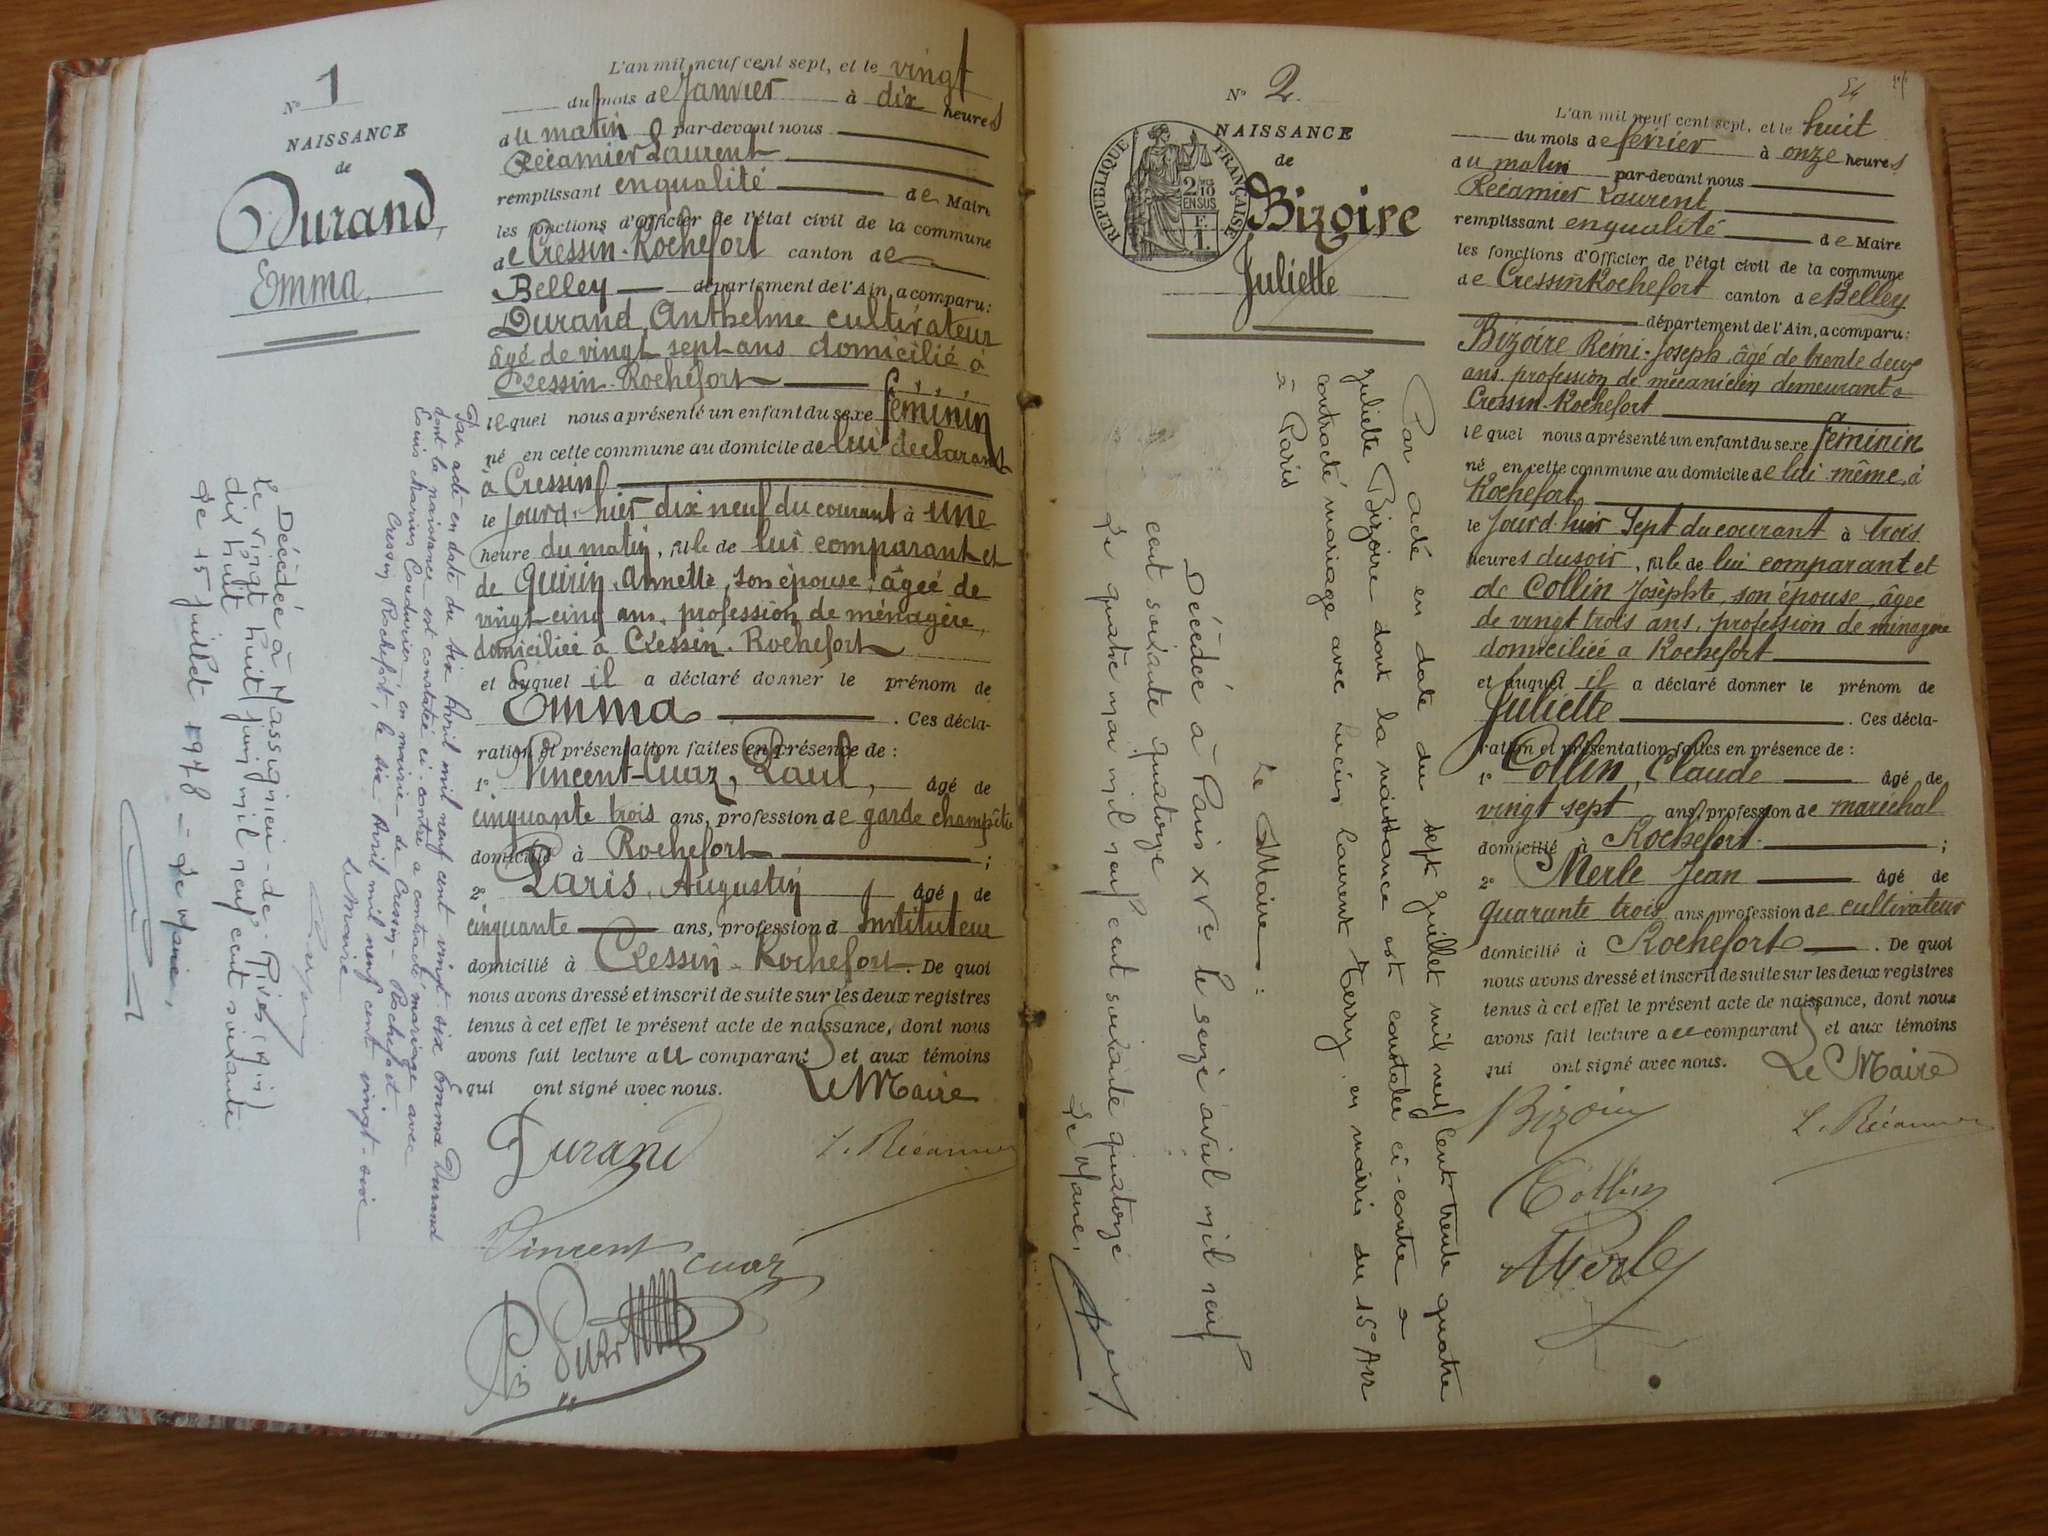 N° 1
NAISSANCE
de
Durand,
Emma,
L'an mil neuf cent sept, et le vingt
du mois de Janvier à dix heures
du matin par-devant nous
Récamier Laurent
remplissant en qualité de Maire
les fonctions d'officier de l'état civil de la commune
de Cressin-Rochefort canton de
Belley département de l'Ain, a comparu:
Durand Anthelme cultivateur
âgé de vingt sept ans domicilié à
Cressin-Rochefort
lequel nous a présenté un enfant du sexe féminin
né en cette commune au domicile de lui déclarant
à Cressin
le jourd'hier dix neuf du courant à une
heure du matin, fille de lui comparant et
de Guirin Annette, son épouse, âgée de
vingt cinq ans, profession de ménagère,
domiciliée à Cressin-Rochefort
et auquel il a déclaré donner le prénom de
Emma . Ces décla-
ration et présentation faites en présence de :
1° Vincent-Cuaz, Paul, âgé de
cinquante trois ans, profession de garde champêtre
domicilié à Rochefort ;
2° Paris, Augustin âgé de
cinquante ans, profession d'Instituteur
domicilié à Cressin-Rochefort. De quoi
nous avons dressé et inscrit de suite sur les deux registres
tenus à cet effet le présent acte de naissance, dont nous
avons fait lecture au comparant et aux témoins
qui ont signé avec nous.
Le Maire
Durand
L. Récamier
Vincent Cuaz
Par acte en date du six Avril mil neuf cent vingt-six Emma Durand
dont la naissance est constatée ci-contre a contracté mariage avec
Louis Marius Couturier en mairie de Cressin-Rochefort
Cressin Rochefort, le six Avril mil neuf cent vingt-six
Le Maire
Décédée à Massignieu-de-Rives (Ain)
le vingt huit juin mil neuf cent soixante
dix huit
Le 15 juillet 1978 - Le Maire,
N° 2.
NAISSANCE
de
Bizoire
Juliette
REPUBLIQUE FRANÇAISE
2/10 EN SUS
54
L'an mil neuf cent sept, et le huit
du mois de février à onze heures
du matin par-devant nous
Récamier Laurent
remplissant en qualité de Maire
les fonctions d'Officier de l'état civil de la commune
de Cressin Rochefort canton de Belley
département de l'Ain, a comparu:
Bizoire Rémi-Joseph âgé de trente deux
ans profession de mécanicien demeurant à
Cressin-Rochefort
lequel nous a présenté un enfant du sexe féminin
né en cette commune au domicile de lui-même, à
Rochefort
le jourd'hier Sept du courant à trois
heures du soir, fille de lui comparant et
de Collin Josèphte, son épouse, âgée
de vingt trois ans, profession de ménagère
domiciliée à Rochefort
et auquel il a déclaré donner le prénom de
Juliette . Ces décla-
ration et présentation faites en présence de :
1° Collin, Claude âgé de
vingt sept ans, profession de maréchal
domicilié à Rochefort ;
2° Merle Jean âgé de
quarante trois ans, profession de cultivateur
domicilié à Rochefort . De quoi
nous avons dressé et inscrit de suite sur les deux registres
tenus à cet effet le présent acte de naissance, dont nous
avons fait lecture au comparant et aux témoins
qui ont signé avec nous.
Le Maire
Bizoire
L. Récamier
Collin
Merle
Par acte en date du sept Juillet mil neuf cent trente quatre
Juliette Bizoire dont la naissance est constatée ci-contre a
contracté mariage avec Lucien Laurent Terry, en mairie du 15° Arr
à Paris
Le Maire:
Décédée à Paris XVe le seize avril mil neuf
cent soixante quatorze
Le quatre mai mil neuf cent soixante quatorze
Le Maire,